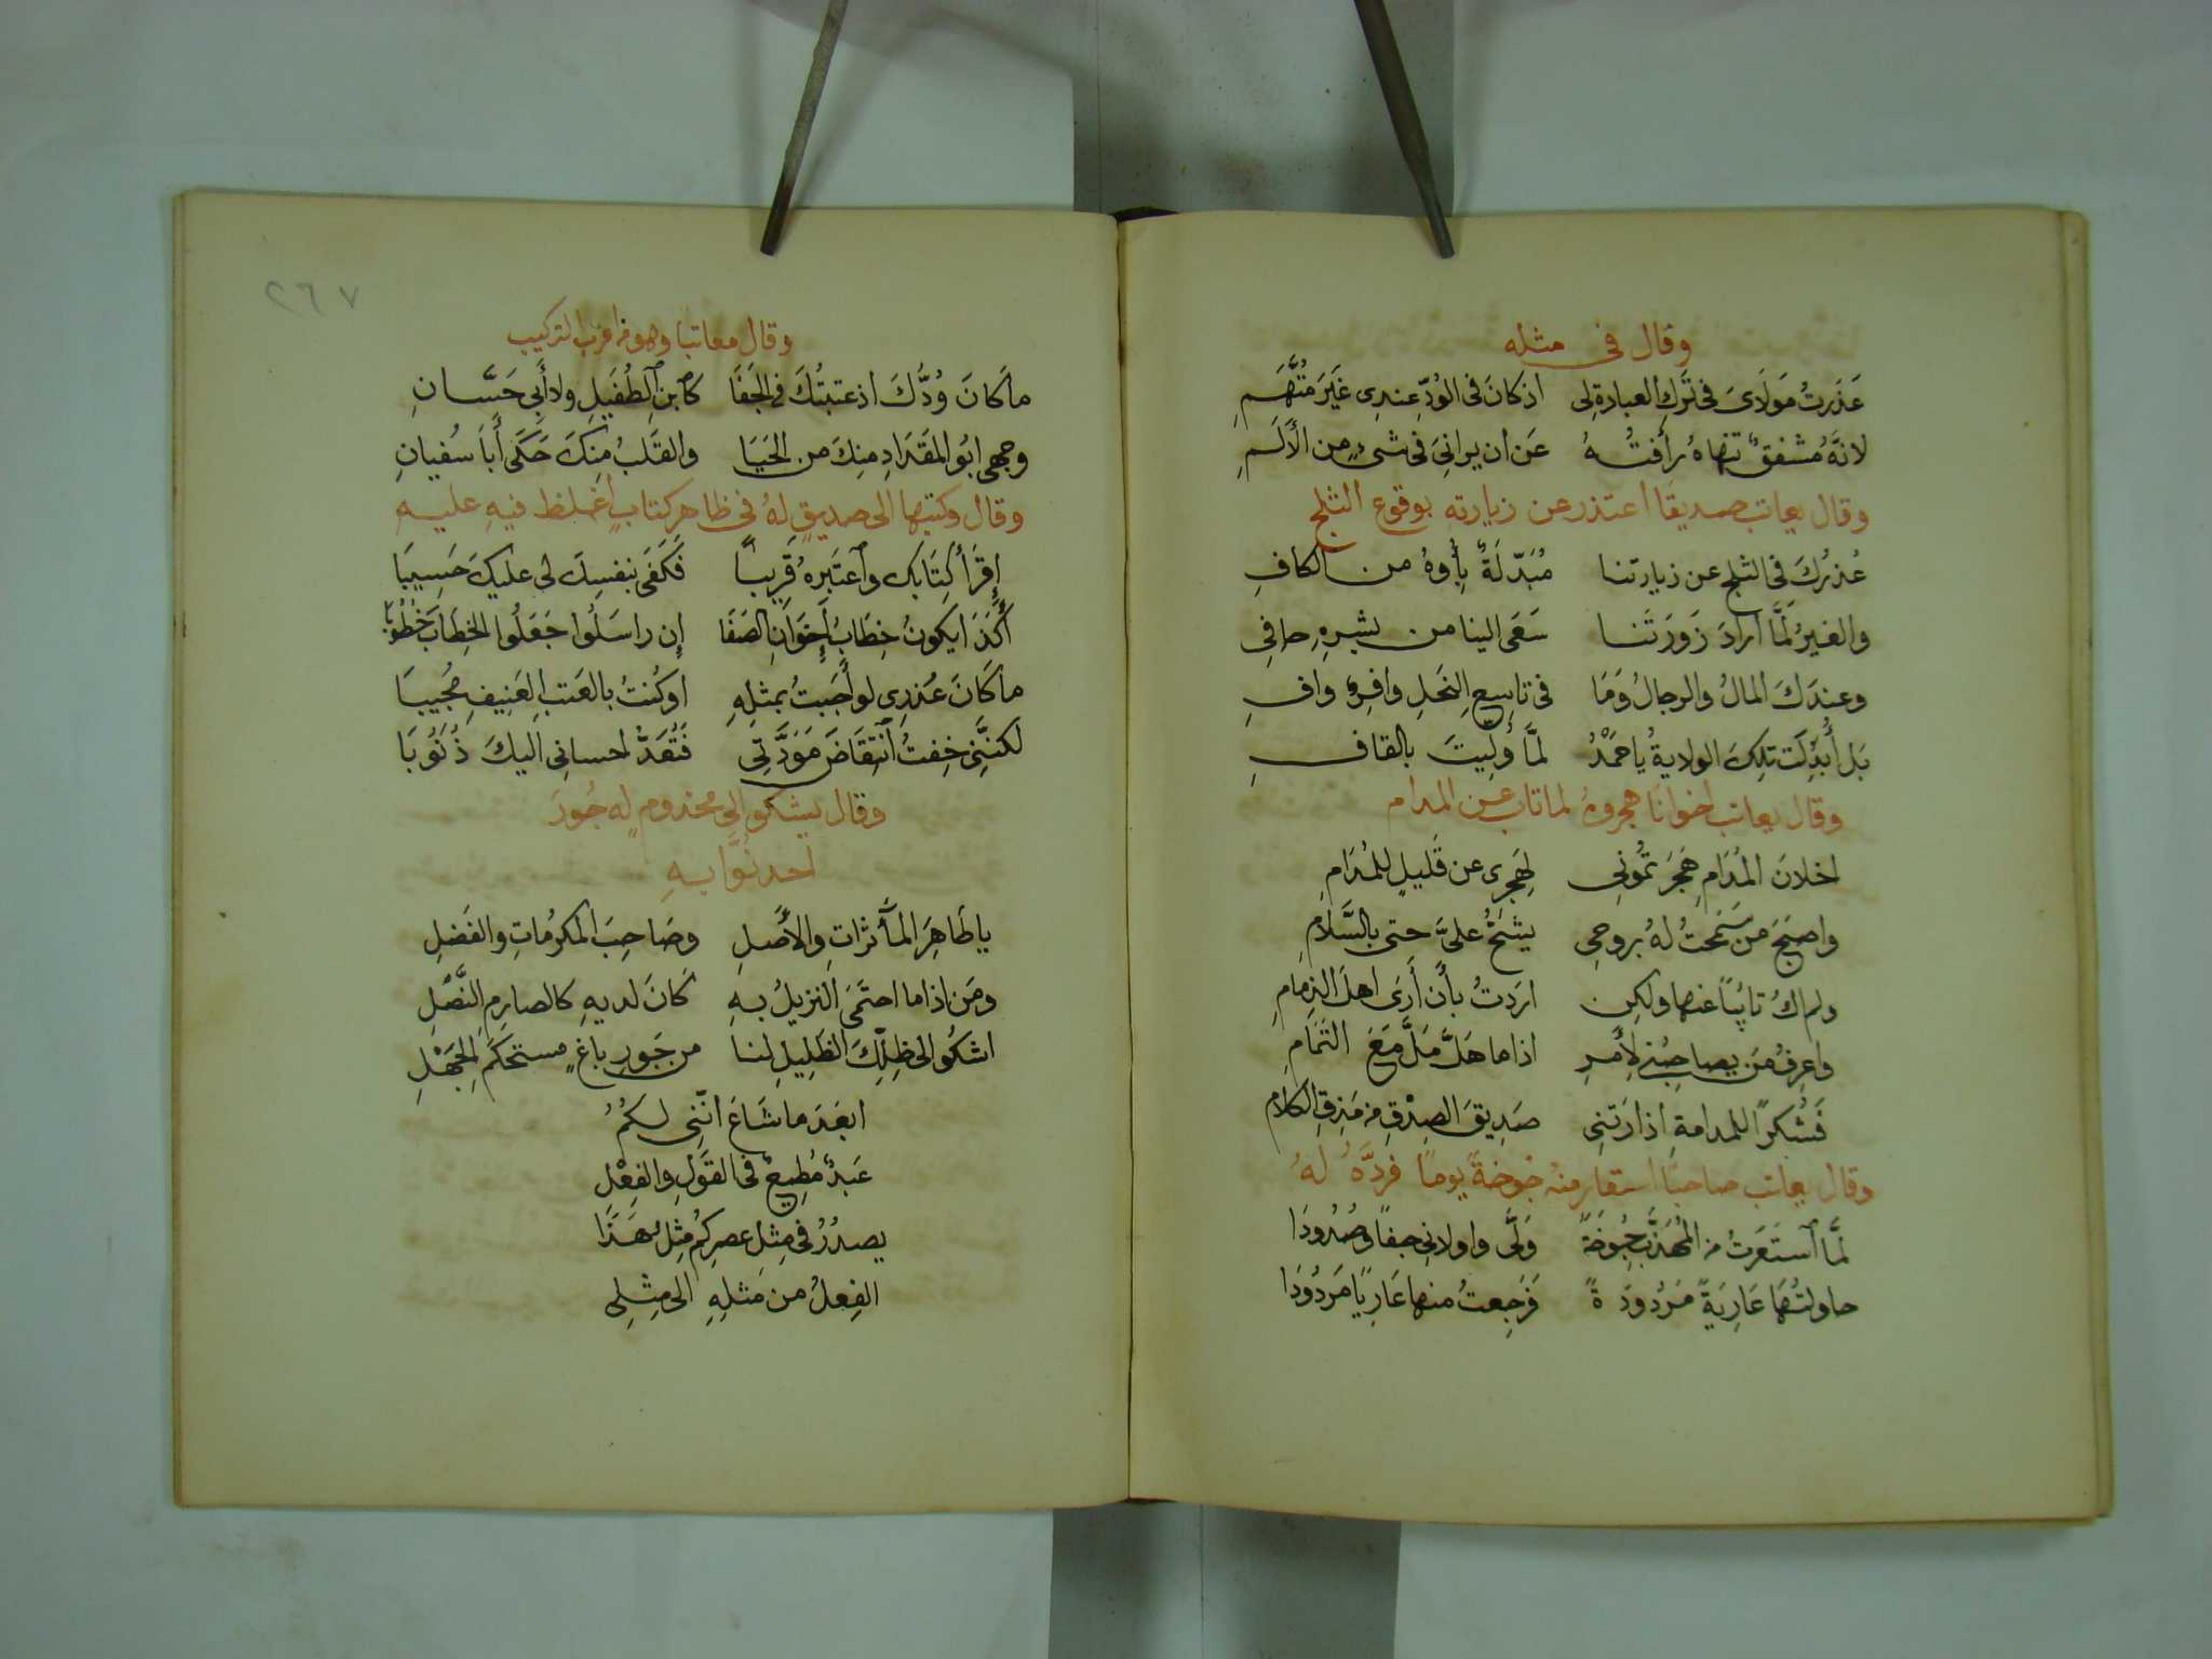 وقال فى مثله
عَذَرتُ مَولَاىَ فى تَركِ العيادةِ لى اذ كانَ فى الوُدِّ عِندِى غَيَر مُتَّهَمِ
لانهَّ مُشفقٌ تنهاهُ رأفتُهُ عَن ان يرانىَ فى شىءٍ من الأَلَمِ
وقال يعاتب صديقًا اعتذر عن زيارته بوقوع الثلج
عُذرُكَ فى الثلج عن زيارتنا مُبَدّلَةٌ يأوهُ من الكافِ
والغيرُ لَمَّا ارادَ زَورَتَنا سَعَى الينا من بشرِهِ حافِى
وعندَكَ المالُ والرجالُ وَمَا فى تاسِعِ النحَلِ وافِرٌ وافِ
بَل أُبْدِلَت تلكَ الولايةُ ياحَمْدُ لمَّا وُلِيتَ بالقافِ
وقال يعاتب اخوانًا هجروهُ لما تاب عن المدام
اخلانَ المُدَامِ هَجَرتمُونِى لِهَجرِى عن قَليلٍ للمُدَامِ
واصبَحَ من سَمَحتُ لهُ بروحِى يشحُّ علىَّ حتى بالسَّلامِ
ولم اكُ تائبًا عنها ولكِن ارَدتُ بأن أَرَى اهلَ الذِمامِ
واعرِفُ مَن يصاحِبُنى لِأَمرِ اذا ما حَلَّ مَلَّ مَعَ التَمَامِ
فَشُكرًا للمدامةِ اذ ارَتنِى صَدِيقَ الصِدْقِ من مَذِقِ الكلامِ
وقال يعاتب صاحبًا استعار منهُ جوخةً يومًا فردَّهُ لهُ
لمَّا ٱستَعَرتُ من المُهَذَّبِ جُوخَةً وَلَّى واولانِى جفًا وصُدُودَا
حاولتُهَا عَارِيَةً مَردُودَةً فَرَجِعتُ منها عَارِيًا مَردُودَا
٢٦٧
وقال معاتبا وهو من اغرب التركيب
ما كَانَ وُدُّكَ اذ عتبتُكَ فى الجَفَا كَٱبنِ ٱلطُفَيلِ ولا أَبِى حَسَّانِ
وجهى ابُو المقدَادِ مِنكَ من الحَيَا والقَلبُ مِنكَ حَكَى أَبَا سُفيانِ
وقال وكتبها الى صديقٍ لهُ فى ظاهر كتابٍ أغلظ فيهِ عليهِ
إقرَأ كِتَابَكَ وٱعتَبِرهُ قَرِيبًا فَكَفَى بنفسِكَ لى عليكَ حَسِيبَا
أَكَذَا يكونُ خِطَابُ إِخوَانِ الصَفَا إِن راسَلُوا جَعَلُوا الخِطابَ خُطُوبَا
ما كَانَ عُذرِى لو أَجَبتُ بمثلِهِ اوكُنتُ بالعَتبِ العَنِيفِ مُجِيبَا
لكنَّنِى خِفتُ ٱنتِقَاضَ مَوَدَّتِى فَتُعَدُّ احسانِى اليكَ ذُنُوبَا
وقال يشكو الى مخدومٍ لهِ جُورَ
احد نُوَّابهِ
يا طَاهِرَ المأَثرَاتِ والأَصلِ وصَاحِبَ المَكرُماتِ والفَضلِ
ومَن اذا ما احتَمَى النزيلُ بهِ كَانَ لديهِ كالصارِمِ النَّصْلِ
اشكُو الى ظِلِّكَ الظَلِيلِ لنا من جَورِ باغٍ مستحكَمِ الجَهْلِ
ابَعدَ ما شَاعَ انَّنِى لكُمُ
عَبدٌ مُطِيعٌ فى القَولِ والفِعْلِ
يصدُرُ فى مِثلِ عصرِكُم مِثلُ هَذَا
الفِعلُ من مَثلِهِ الى مِثلِى